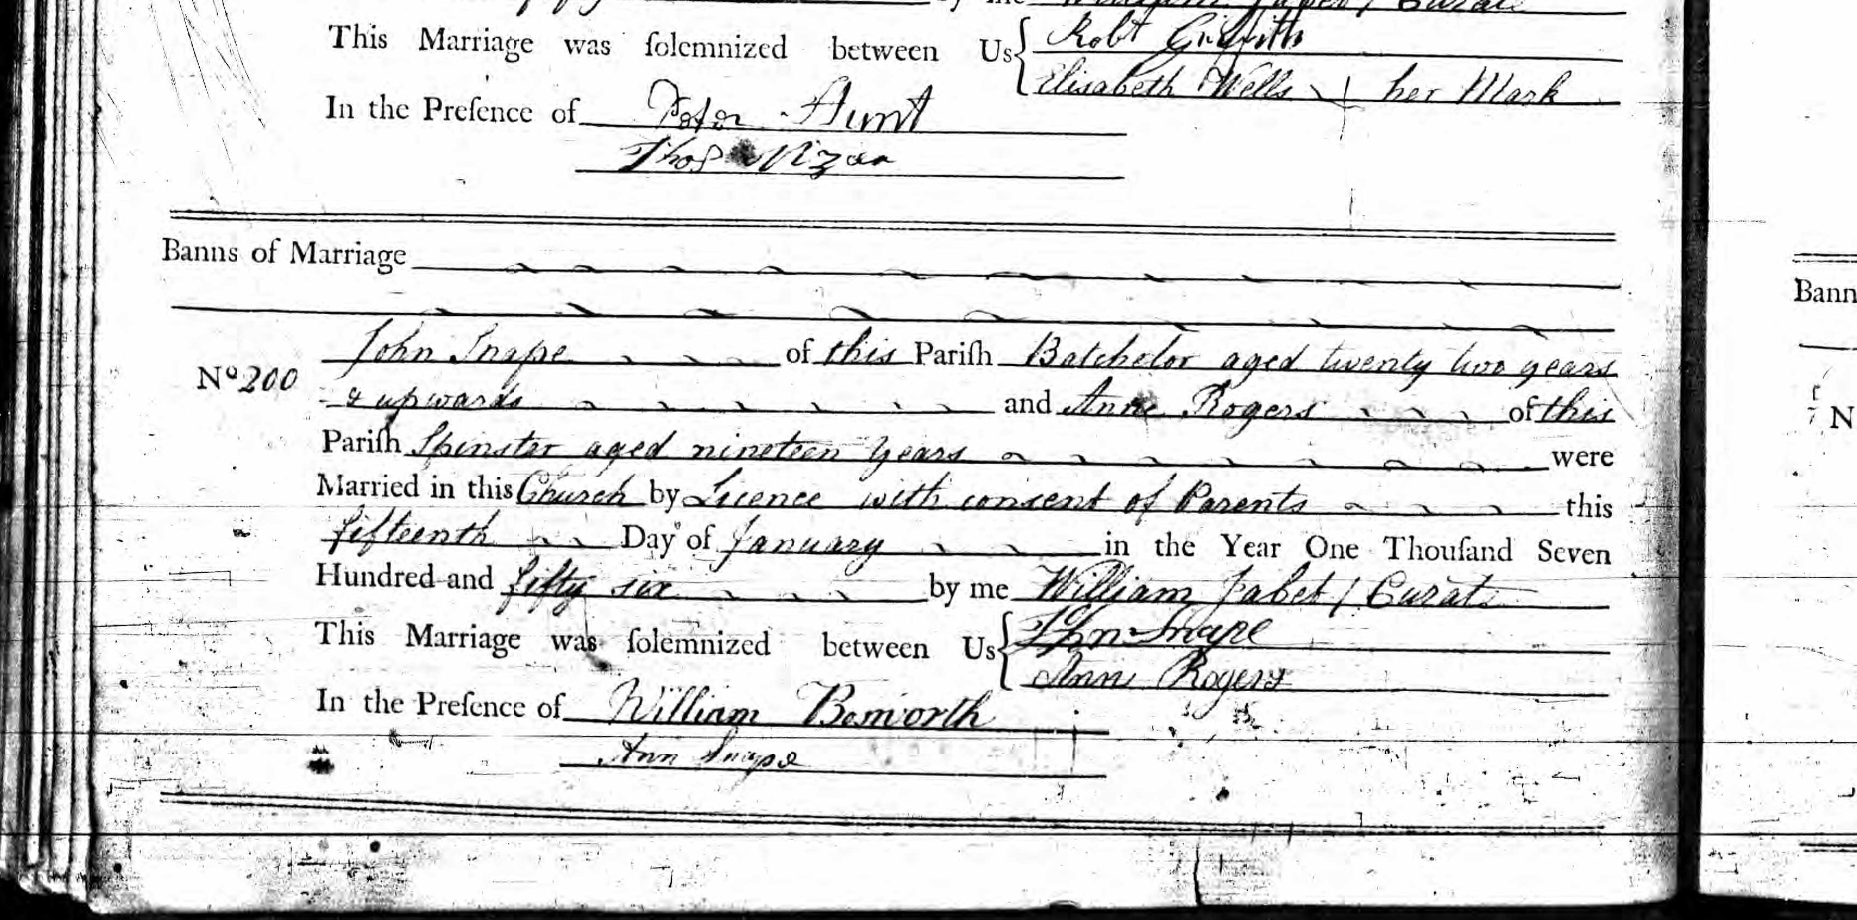 by me William Jabet / Curate
This Marriage was ſolemnized between Us Robt Griffith
Elisabeth Wells her Mark
In the Preſence of Peter Hunt
Thos
Banns of Marriage
John Snape of this Pariſh Batchelor aged twenty two years
No 200
& upwards and Anne Rogers of this
Pariſh Spinster aged nineteen years were
Married in this Church by Licence with consent of Parents this
fifteenth Day of January in the Year One Thouſand Seven
Hundred and fifty six by me William Jabet / Curate
This Marriage was ſolemnized between Us John Snape
Ann Rogers
In the Preſence of William Bosworth
Ann Snape
Bann
N